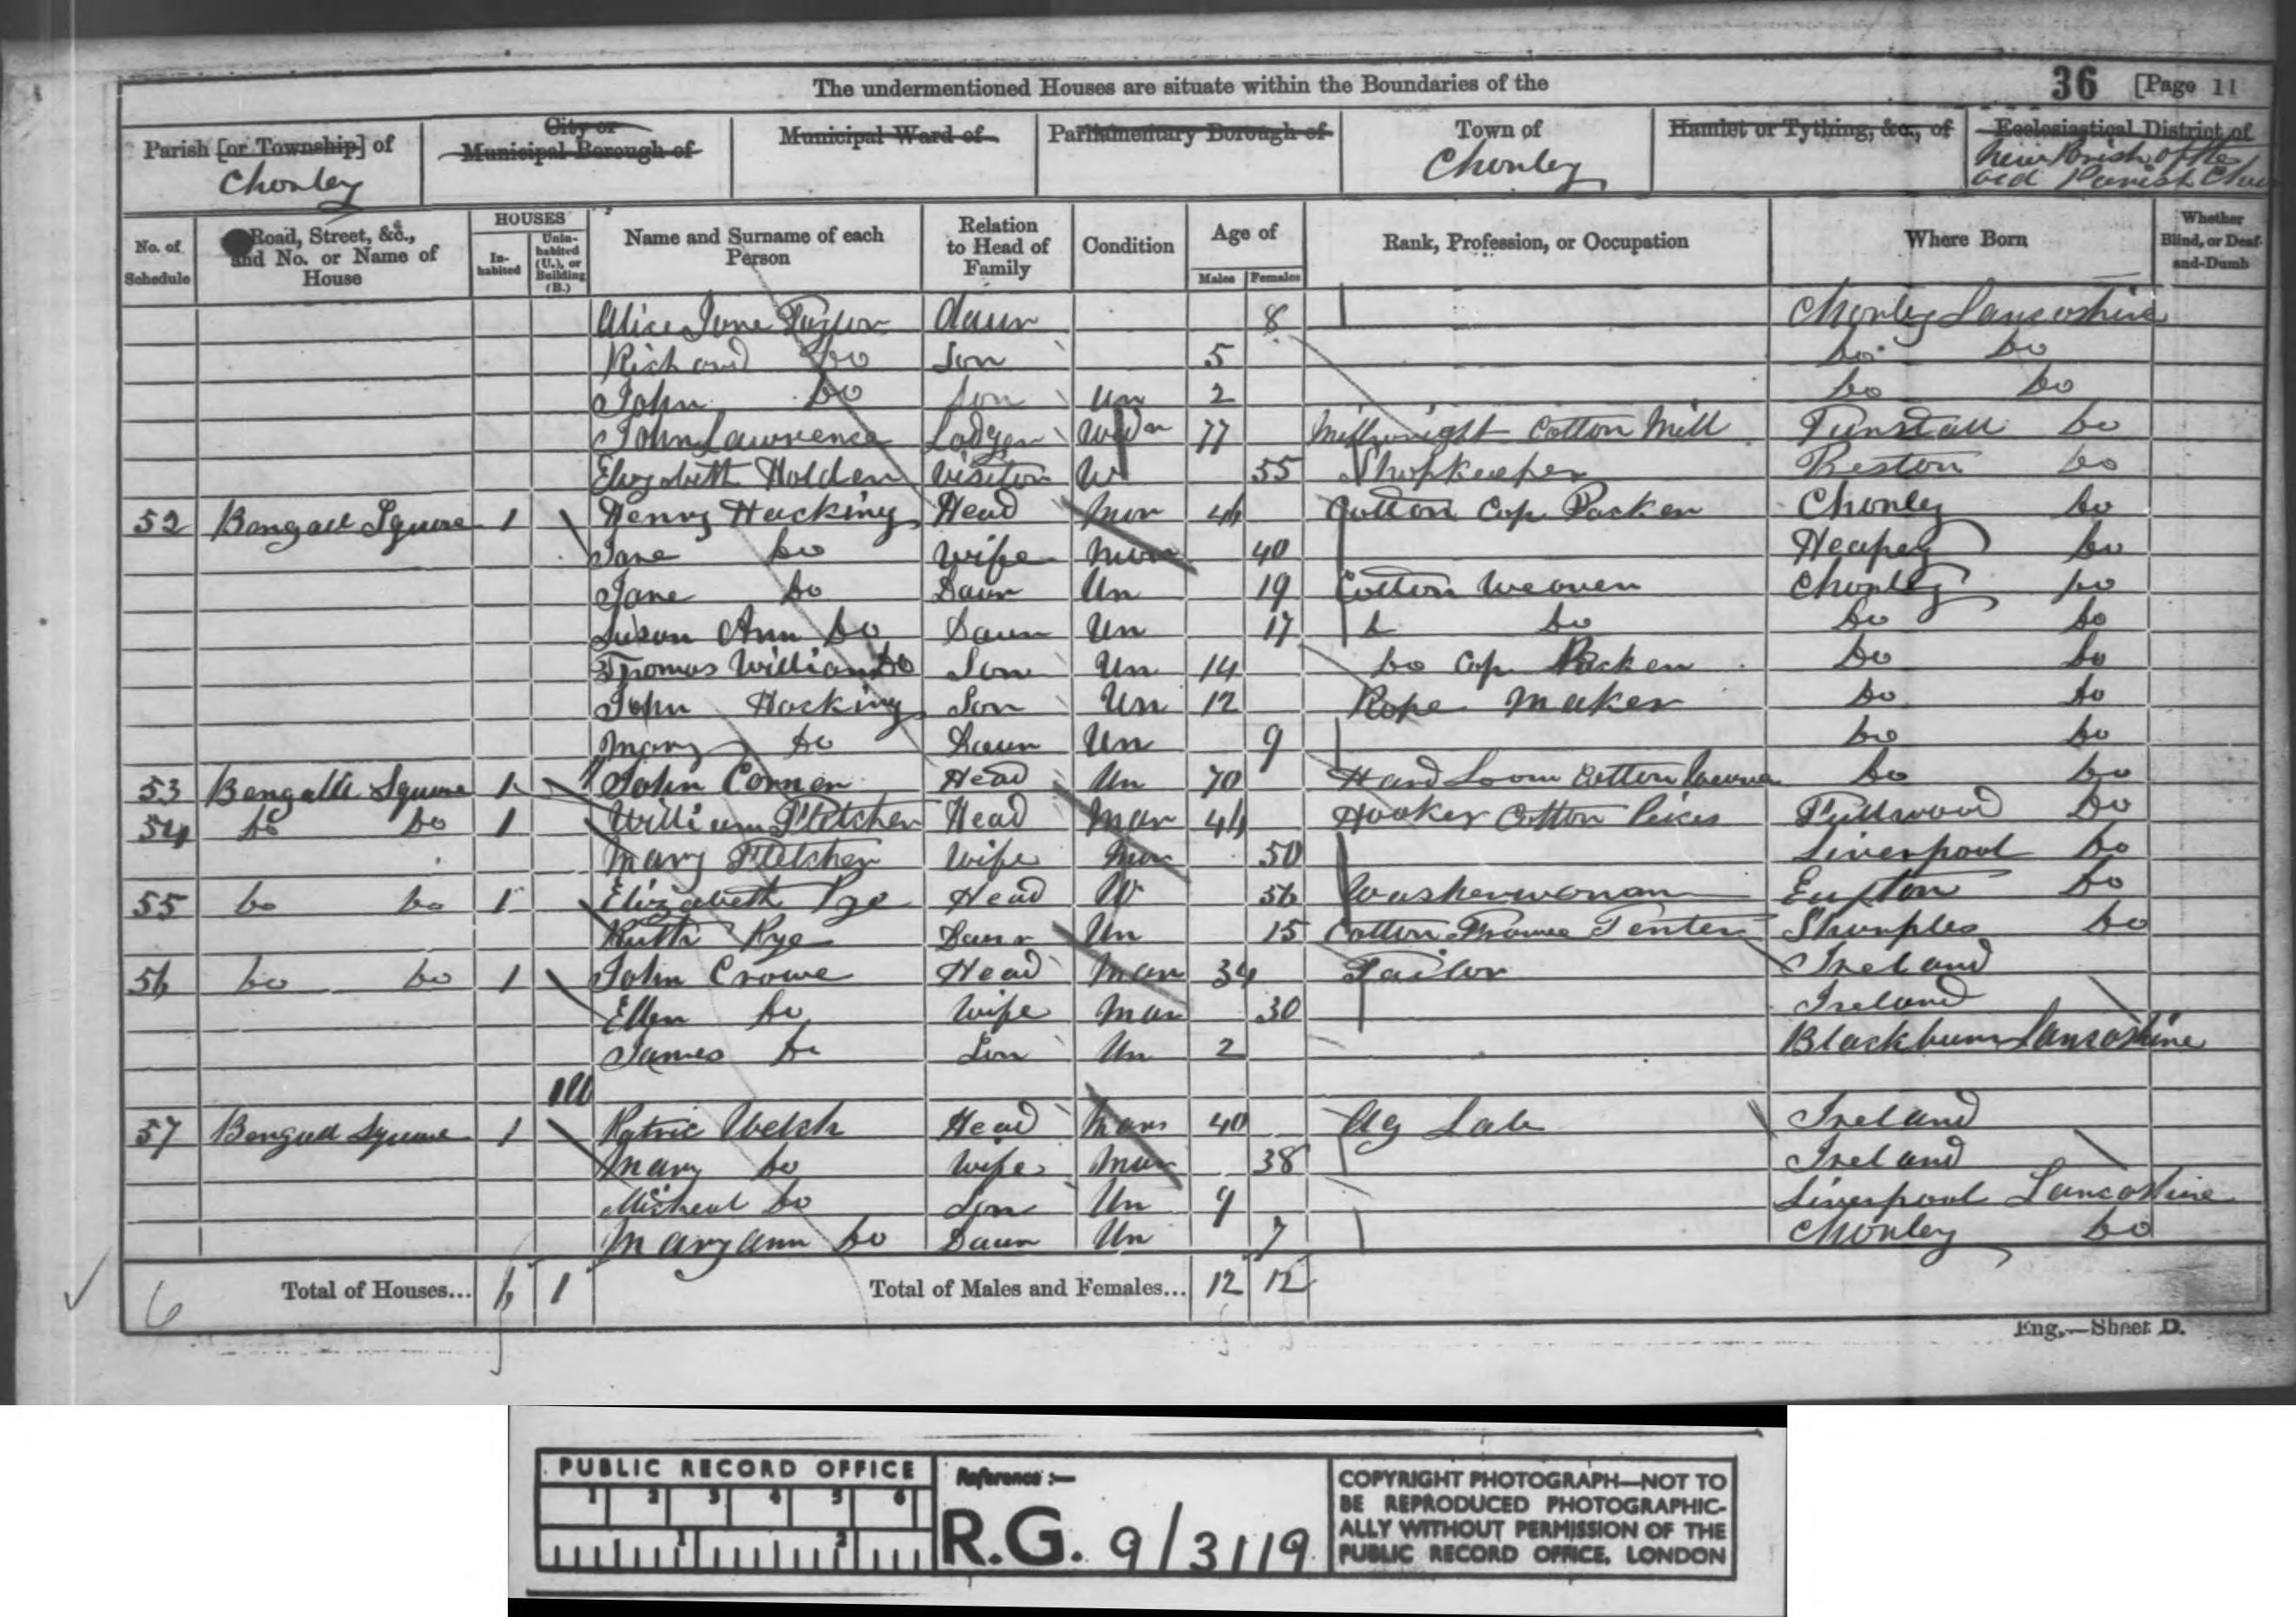 The undermentioned Houses are situate within the Boundaries of the 36 [Page 11
Parish [or Township] of Chorley
City or Municipal Borough of
Municipal Ward of
Parliamentary Borough of
Town of Chorley
Hamlet or Tything, &c., of
Ecclesiastical District of
New Parish of the
old Parish
No. of Schedule
Road, Street, &c., and No. or Name of House
HOUSES
In-habited
Unin-habited (U.), or Building (B.)
Name and Surname of each Person
Relation to Head of Family
Condition
Age of
Males Females
Rank, Profession, or Occupation
Where Born
Whether Blind, or Deaf-and-Dumb
Alice Jane Taylor Daur 8 Chorley Lancashire
Richard Do Son 5 Do Do
John Do Son Un 2 Do Do
John Lawrence Lodger Widr 77 Millwright Cotton Mill Tunstall Do
Elizabeth Holden Visitor W 55 Shopkeeper Preston Do
52 Bengall Square 1 Henry Hacking Head Mar 44 Cotton Cop Packer Chorley Do
Jane Do Wife Mar 40 Heapey Do
Jane Do Daur Un 19 Cotton Weaver Chorley Do
Susan Ann Do Daur Un 17 Do Do Do
Thomas William Do Son Un 14 Do Cop Packer Do Do
John Hacking Son Un 12 Rope Maker Do Do
Mary Do Daur Un 9 Do Do
53 Bengall Square 1 John Corner Head Un 70 Hand Loom Cotton Do Do
54 Do Do 1 William Fletcher Head Mar 44 Hooker Cotton Peices Fullwood Do
Mary Fletcher Wife Mar 50 Liverpool Do
55 Do Do 1 Elizabeth Pye Head W 56 Washerwoman Euxton Do
Ruth Pye Daur Un 15 Cotton Frame Tenter Sharples Do
56 Do Do 1 John Crowe Head Mar 34 Tailor Ireland
Ellen Do Wife Mar 30 Ireland
James Do Son Un 2 Blackburn Lancashire
1U
57 Bengall Square 1 Patric Welsh Head Mar 40 Ag Lab Ireland
Mary Do Wife Mar 38 Ireland
Micheal Do Son Un 9 Liverpool Lancashire
Mary ann Do Daur Un 7 Chorley Do
6 Total of Houses... 6 1 Total of Males and Females... 12 12
Eng.—Sheet D.
PUBLIC RECORD OFFICE
1 2 3 4 5 6
1 2
Reference :—
R.G. 9/3119
COPYRIGHT PHOTOGRAPH—NOT TO
BE REPRODUCED PHOTOGRAPHIC-
ALLY WITHOUT PERMISSION OF THE
PUBLIC RECORD OFFICE, LONDON